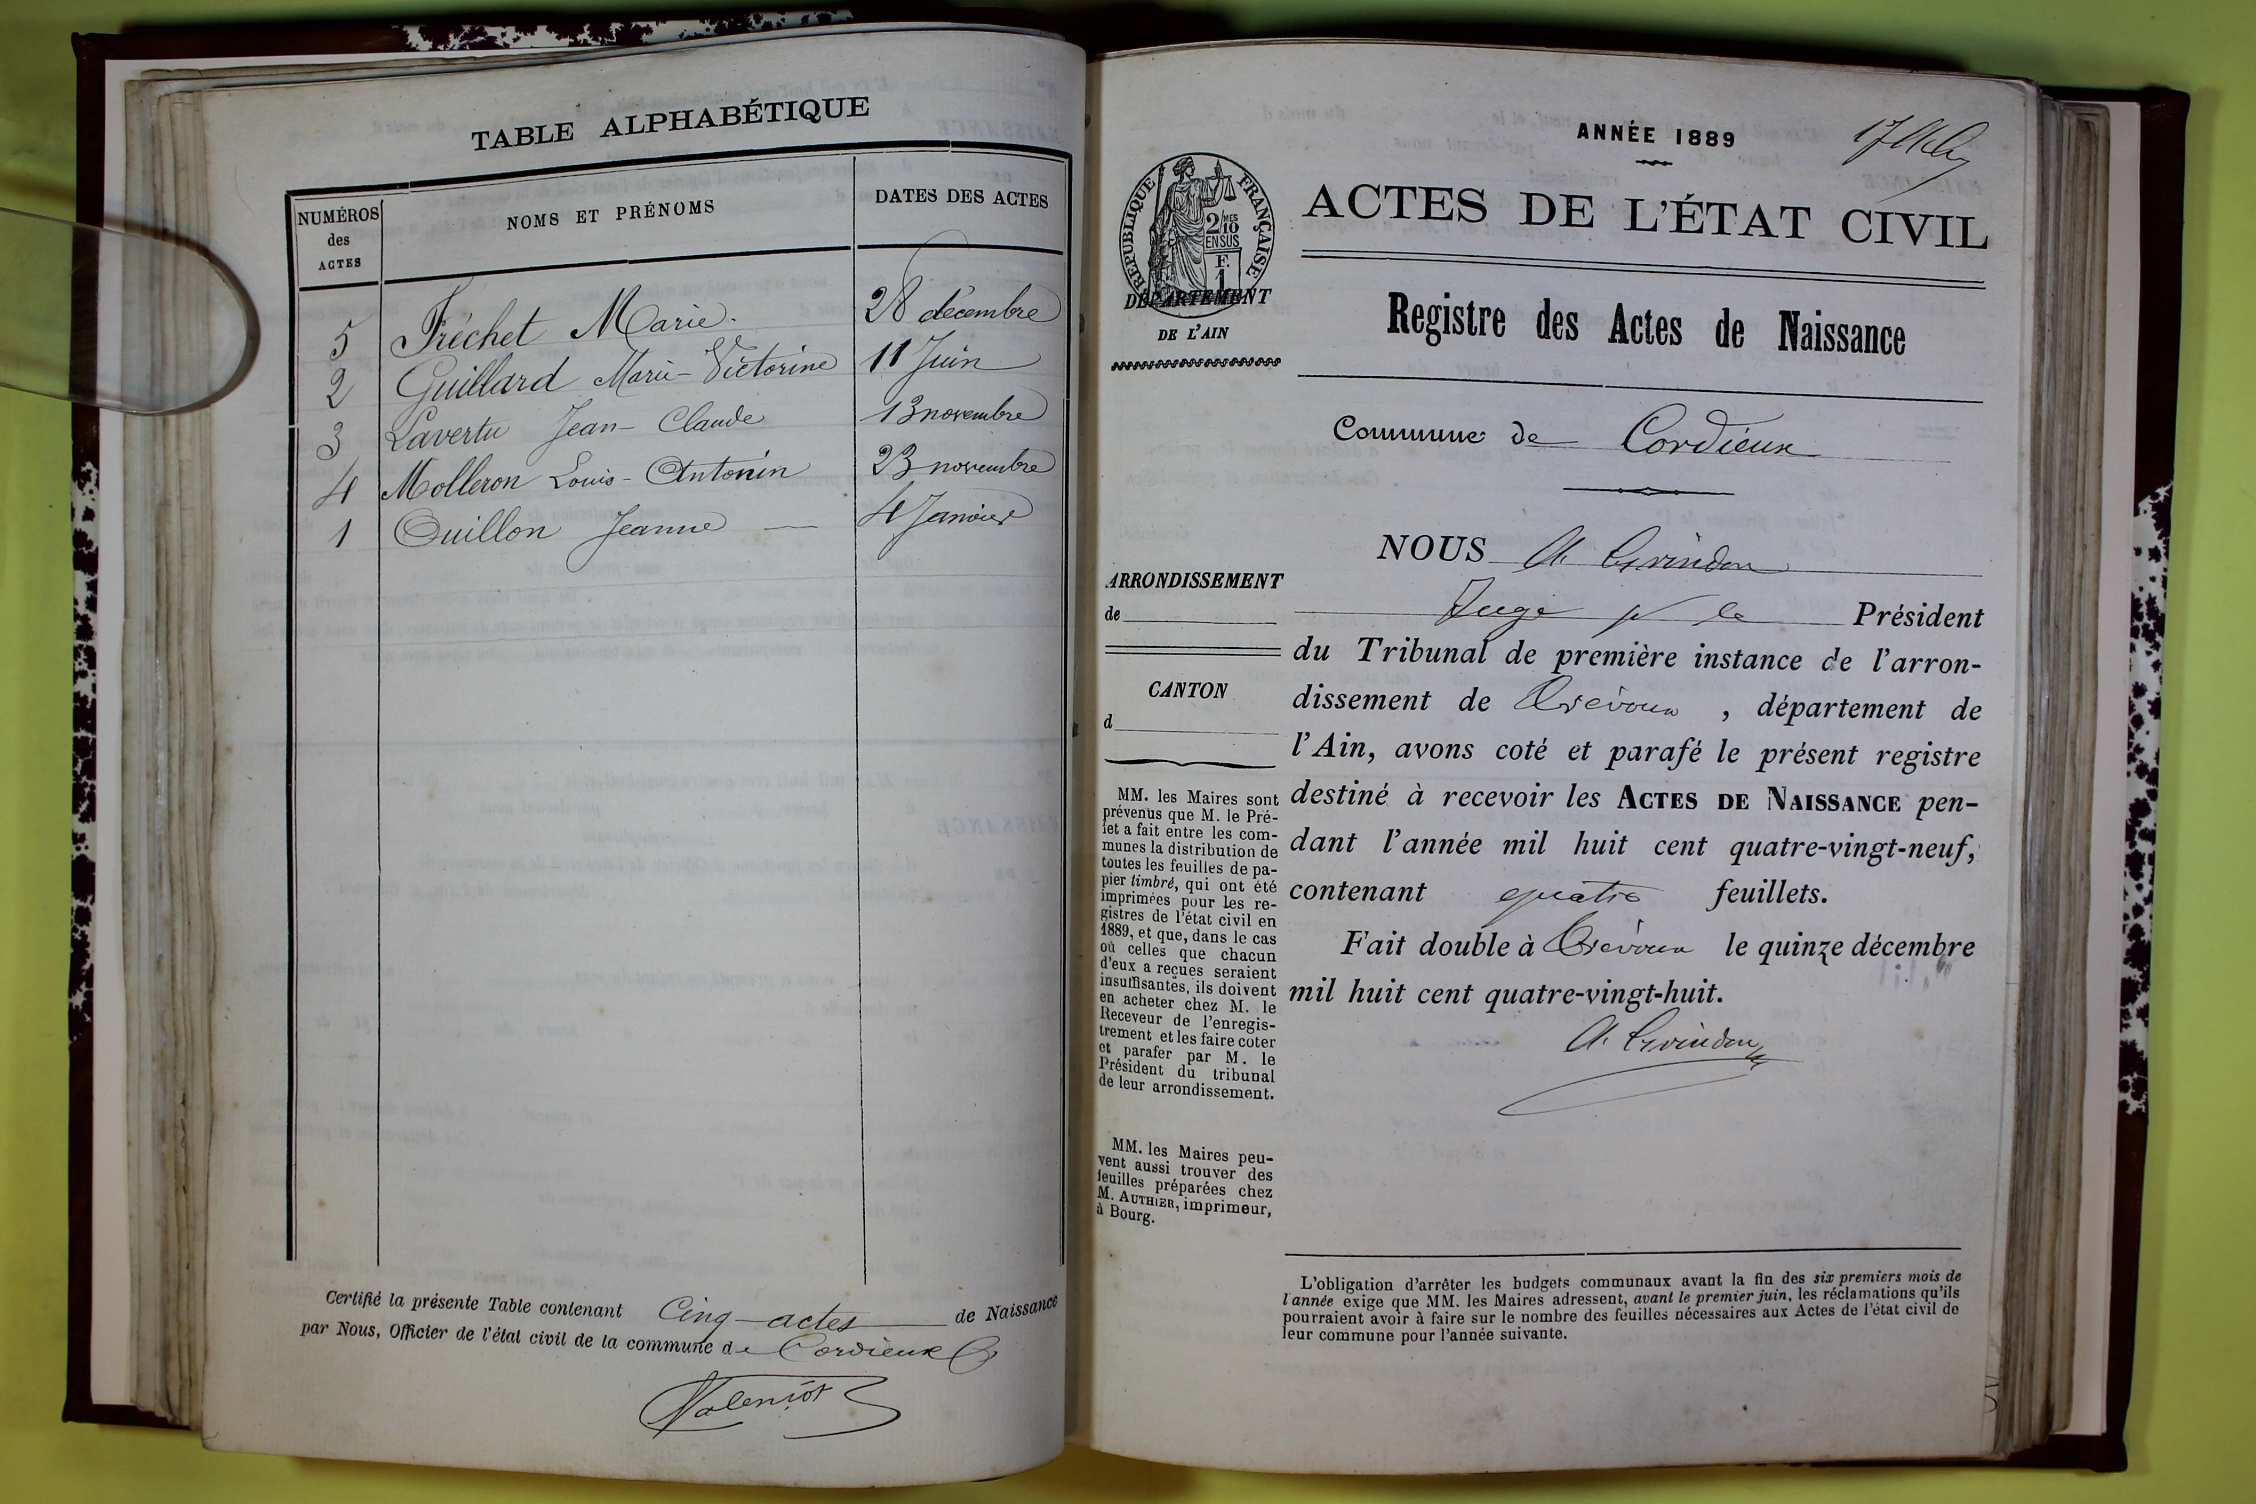 TABLE ALPHABÉTIQUE
NUMÉROS
des
ACTES
NOMS ET PRÉNOMS
DATES DES ACTES
5 Fréchet Marie. 28 décembre
2 Guillard Marie-Victorine 11 Juin
3 Lavertu Jean-Claude 13 novembre
4 Molleron Louis-Antonin 23 novembre
1 Ouillon Jeanne 4 Janvier
Certifié la présente Table contenant Cinq actes de Naissance
par Nous, Officier de l'état civil de la commune de Cordieux
ANNÉE 1889
ACTES DE L'ÉTAT CIVIL
RÉPUBLIQUE FRANÇAISE
2/10 MES
EN SUS
F.
1
DÉPARTEMENT
DE L'AIN
Registre des Actes de Naissance
Commune de Cordieux
NOUS A. Grindon
Juge pr le Président
du Tribunal de première instance de l'arron-
dissement de Trévoux, département de
l'Ain, avons coté et parafé le présent registre
destiné à recevoir les ACTES DE NAISSANCE pen-
dant l'année mil huit cent quatre-vingt-neuf,
contenant quatre feuillets.
Fait double à Trévoux le quinze décembre
mil huit cent quatre-vingt-huit.
A. Grindon
ARRONDISSEMENT
de
CANTON
d
MM. les Maires sont
prévenus que M. le Pré-
fet a fait entre les com-
munes la distribution de
toutes les feuilles de pa-
pier timbré, qui ont été
imprimées pour les re-
gistres de l'état civil en
1889, et que, dans le cas
où celles que chacun
d'eux a reçues seraient
insuffisantes, ils doivent
en acheter chez M. le
Receveur de l'enregis-
trement et les faire coter
et parafer par M. le
Président du tribunal
de leur arrondissement.
MM. les Maires peu-
vent aussi trouver des
feuilles préparées chez
M. AUTHIER, imprimeur,
à Bourg.
L'obligation d'arrêter les budgets communaux avant la fin des six premiers mois de
l'année exige que MM. les Maires adressent, avant le premier juin, les réclamations qu'ils
pourraient avoir à faire sur le nombre des feuilles nécessaires aux Actes de l'état civil de
leur commune pour l'année suivante.